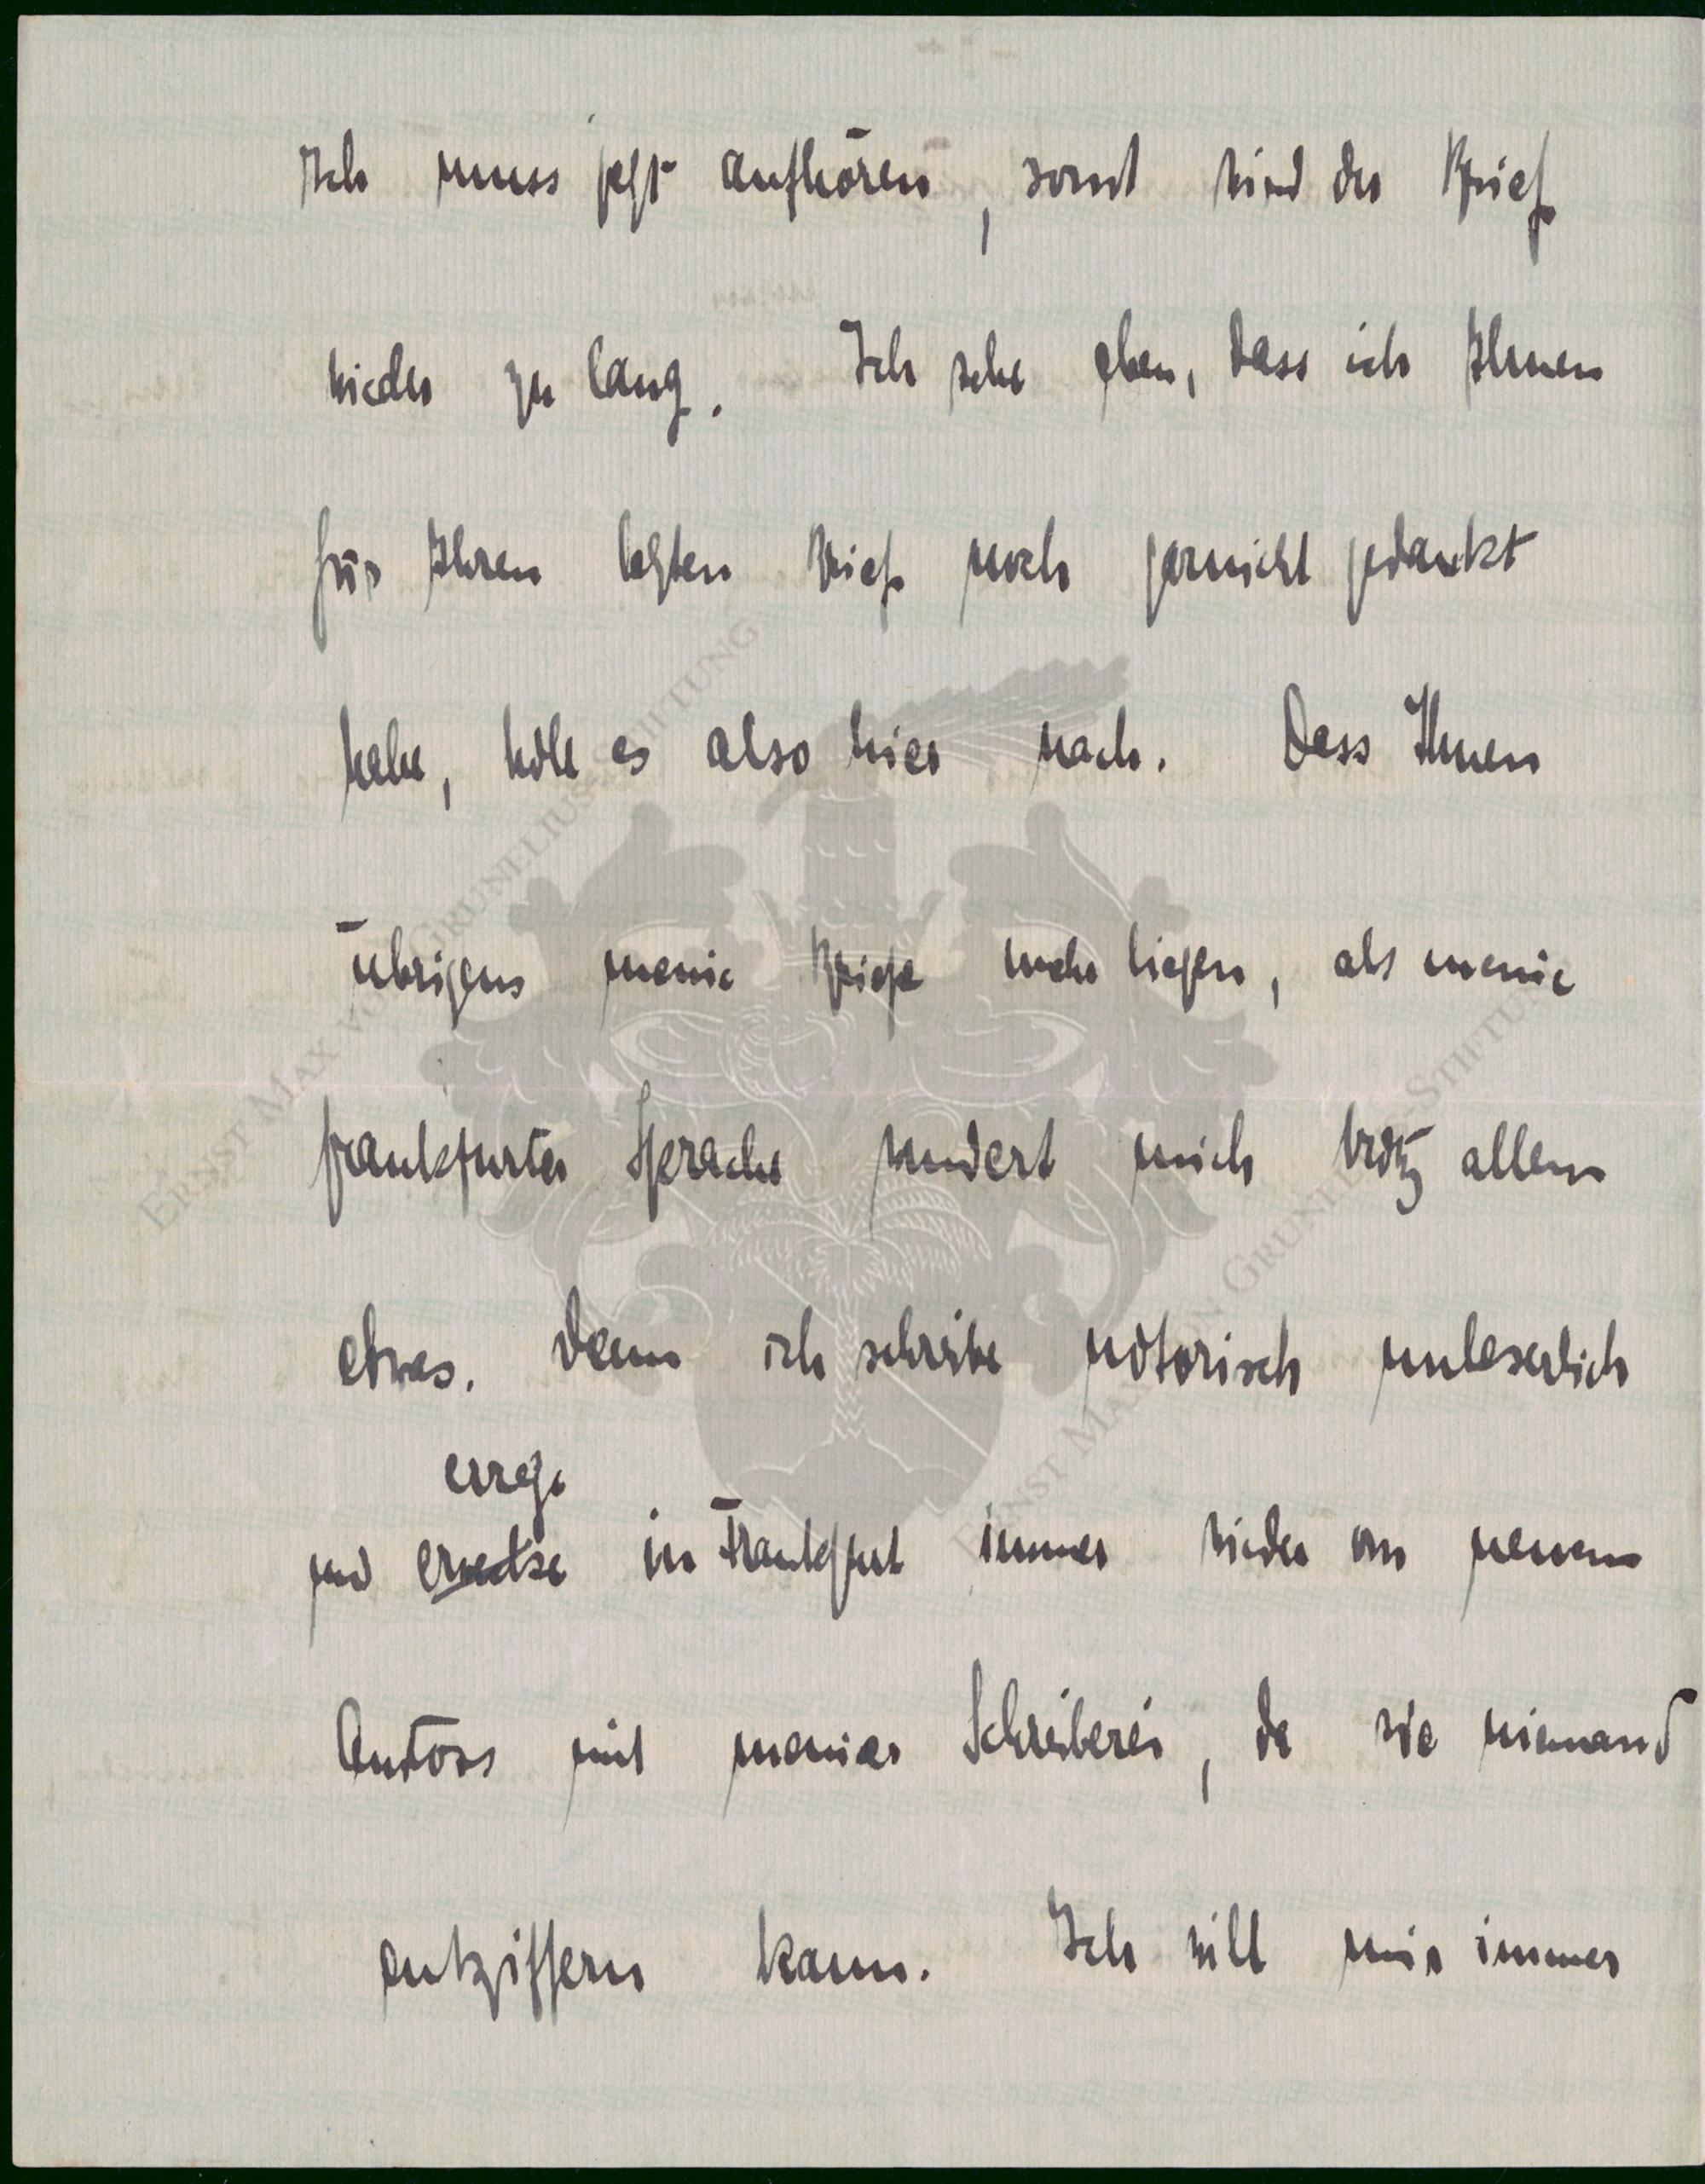 Ich muss jetzt aufhören, sonst wird der Brief
wieder zu lang. Ich sehe eben, dass ich Ihnen
für Ihren letzten Brief noch garnicht gedankt
habe, hole es also hier nach. Dass Ihnen
übrigens meine Briefe mehr liegen, als meine
frankfurter Sprache wundert mich trotz allem
etwas. Denn ich schreibe notorisch unleserlich
errege
und in Frankfurt immer wieder von neuem
Anstoss mit meiner Schreiberei, da sie niemand
entziffern kann. Ich will mir immer
ERNST MAX VON GRUNELIUS-STIFTUNG
ERNST MAX VON GRUNELIUS-STIFTUNG